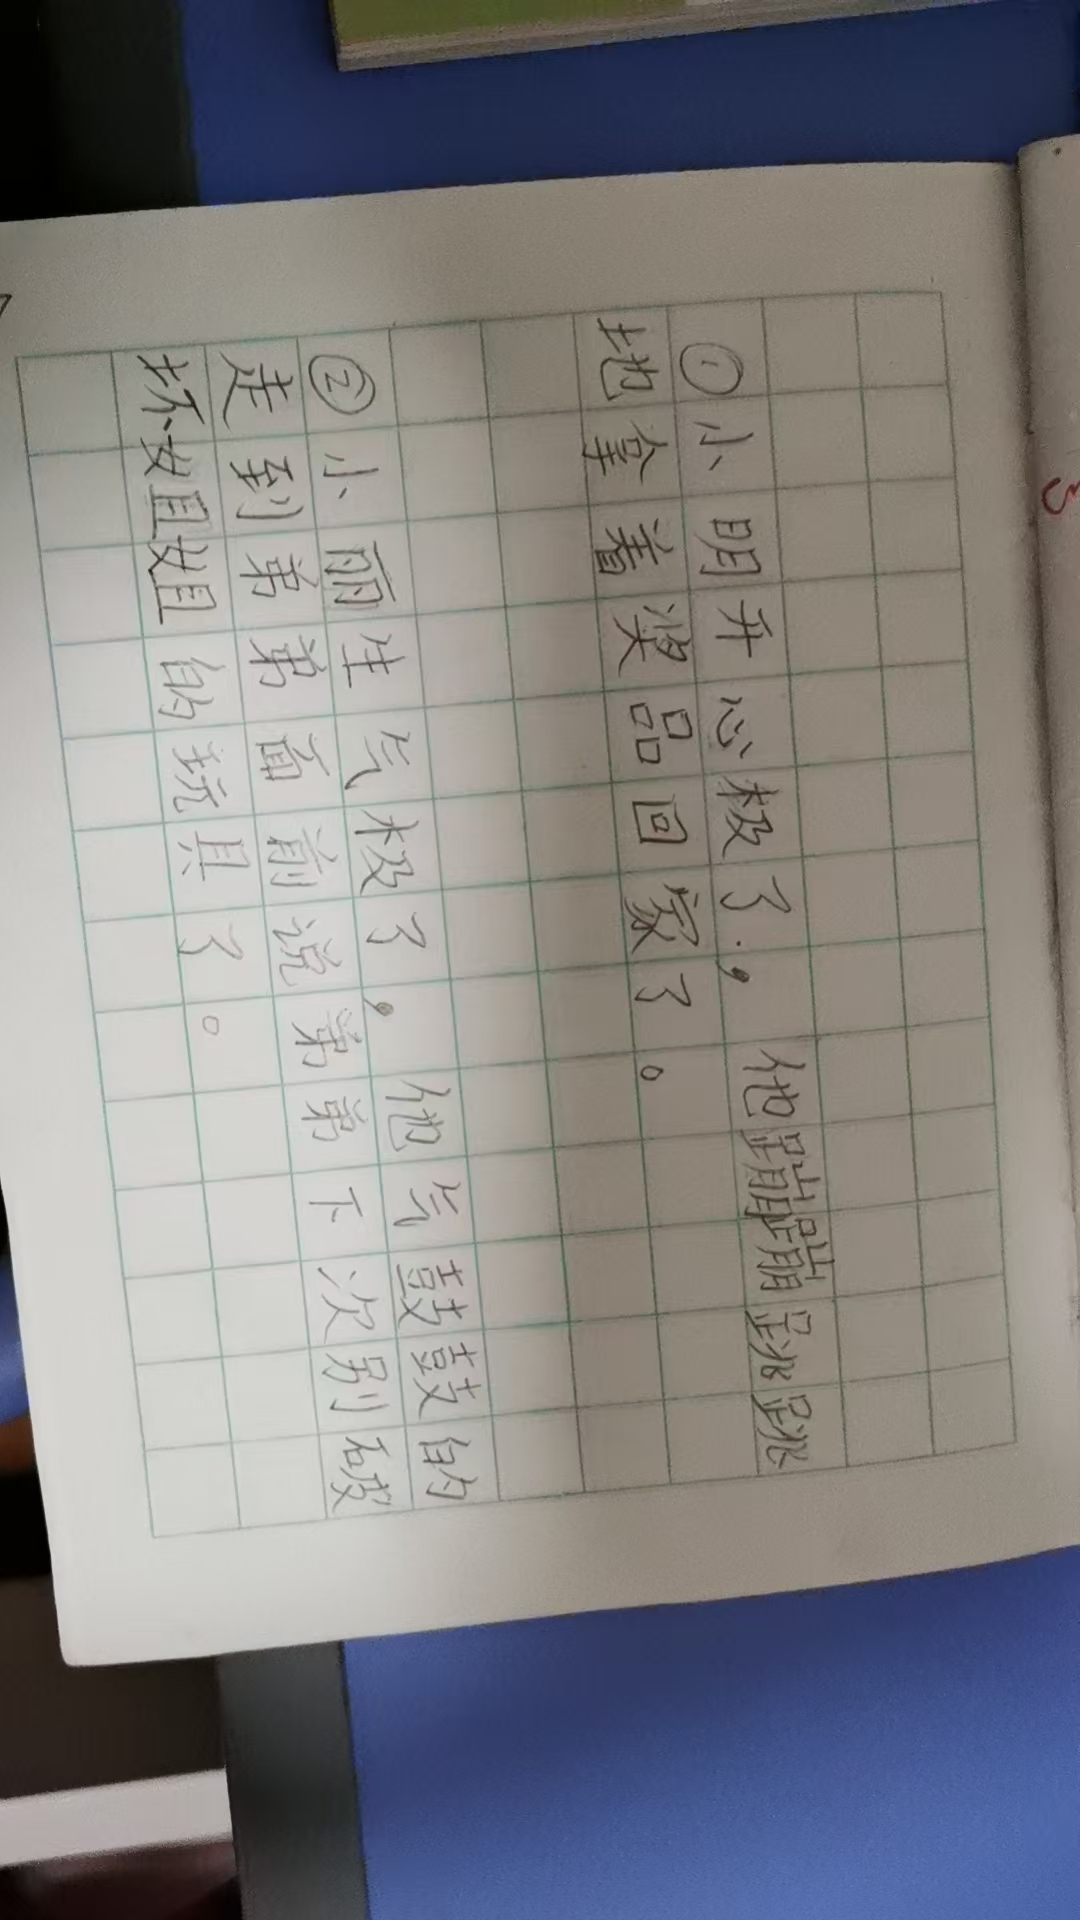 ①小明开心极了,他蹦蹦跳跳
地拿着奖品回家了。
②小丽生气极了,他气鼓鼓的
走到弟弟面前说弟弟下次别破
坏姐姐的玩具了。